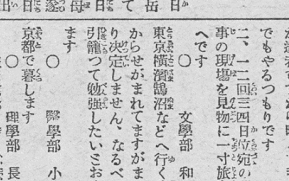 でもやるつもりです
二、一二回三四日位宛の
事の現場を見物に一寸旅
へです
○ 文學部 和
東京橫濱鵠沼などへ行く
からせがまれてますがま
り決定しません、なるべ
引籠つて勉強したいとお
ます
○ 醫學部 小
京都で暮します
○ 理學部 長